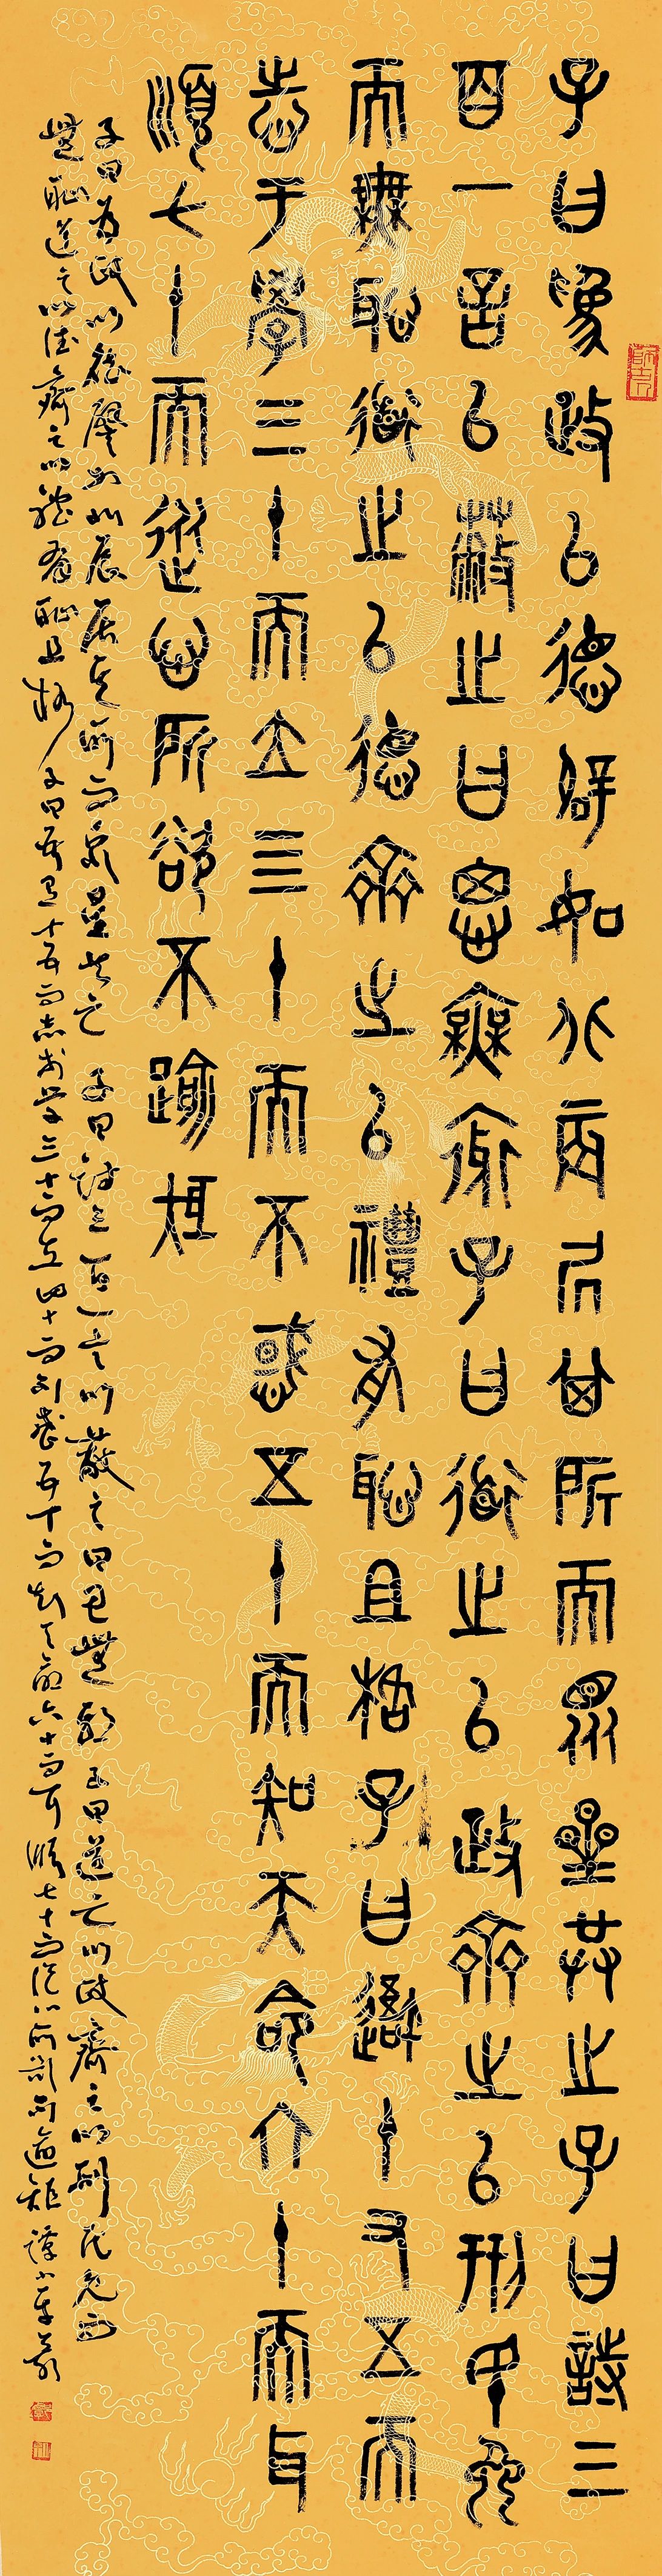 子曰為政以德譬如北辰居其所而眾星共之子曰詩三
百一言以蔽之曰思無邪子曰道之以政齊之以刑民免
而無恥道之以德齊之以禮有恥且格子曰吾十又五而
志于學三十而立四十而不惑五十而知天命六十而耳
順七十而從心所欲不踰矩
子曰為政以德譬如北辰居其所而眾星共之 子曰詩三百一言以蔽之曰思無邪 子曰道之以政齊之以刑民免而
無恥道之以德齊之以禮有恥且格 子曰吾有十五而志於學三十而立四十而不惑五十而知天命六十而耳順七十而從心所欲不逾矩